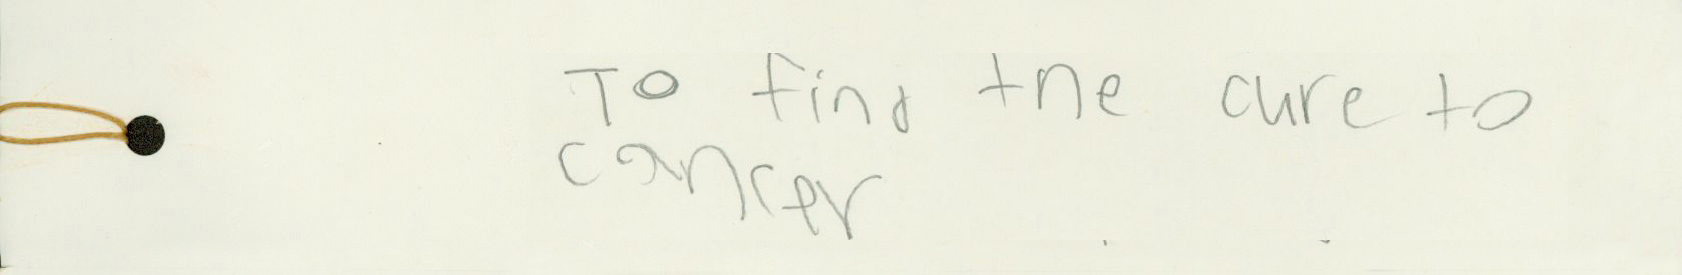 To find the cure to
cancer